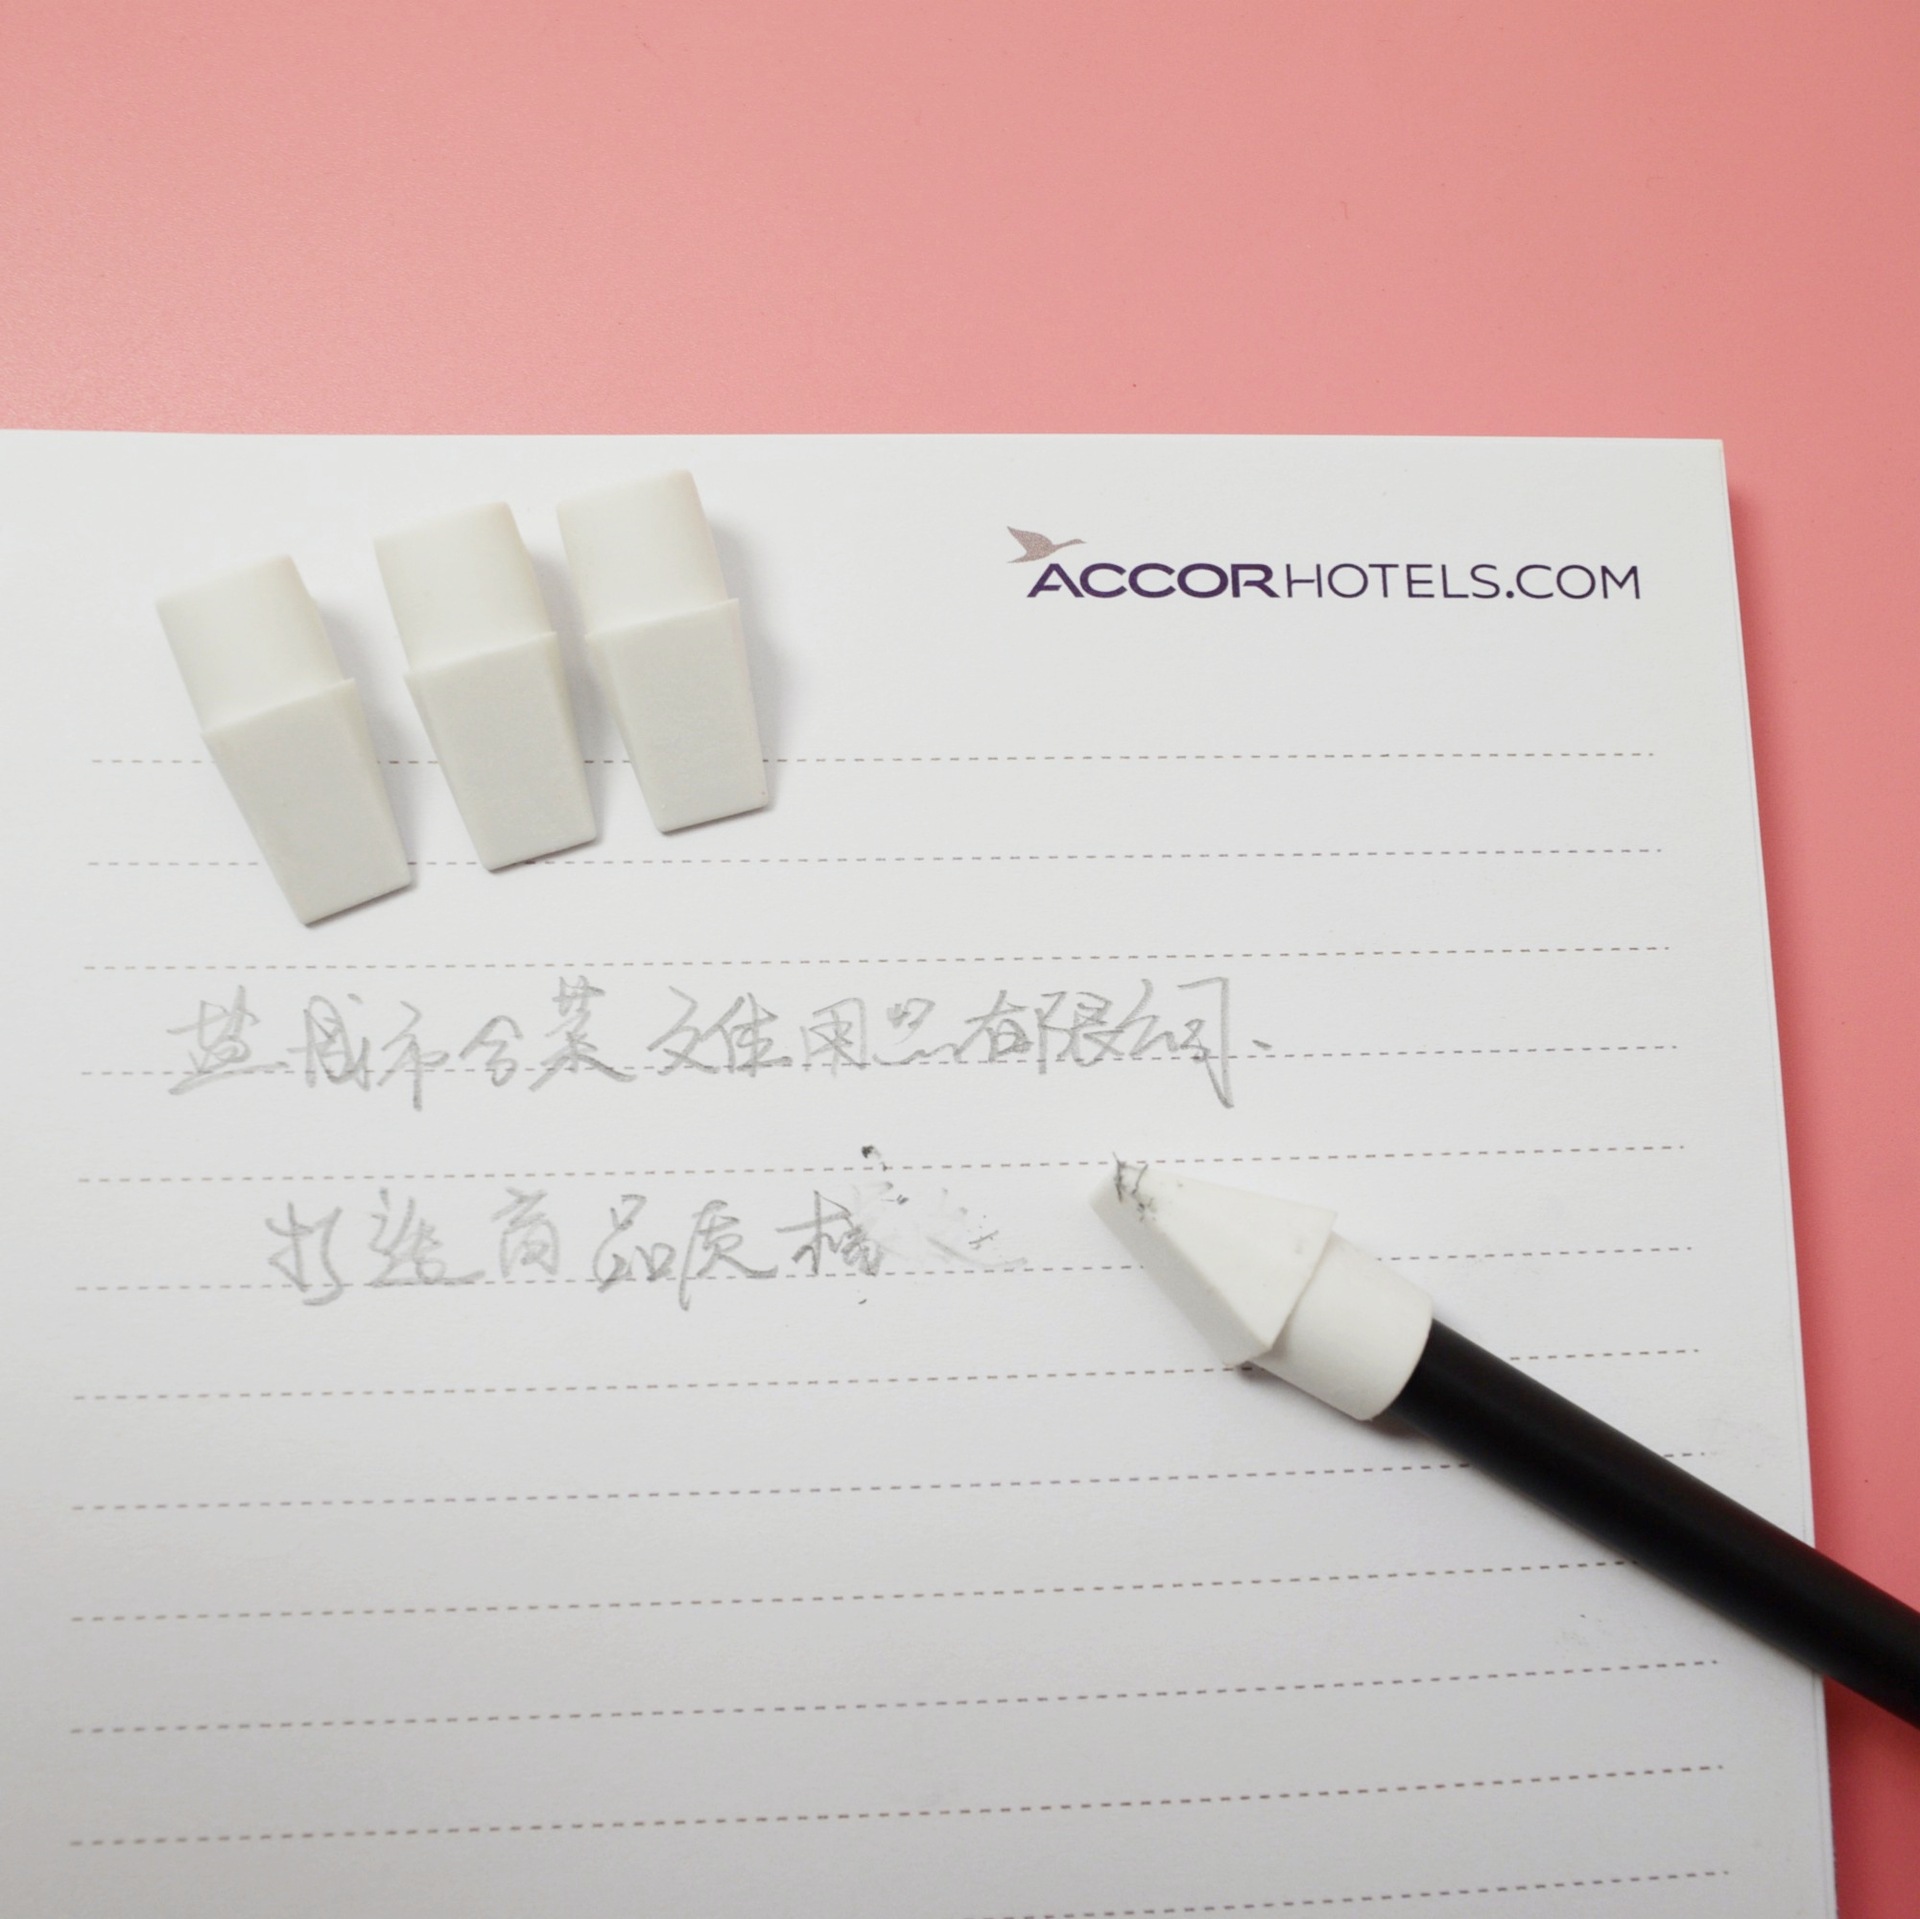 ACCORHOTELS.COM
盐城市合美文体用品有限公司、
打造高品质橡